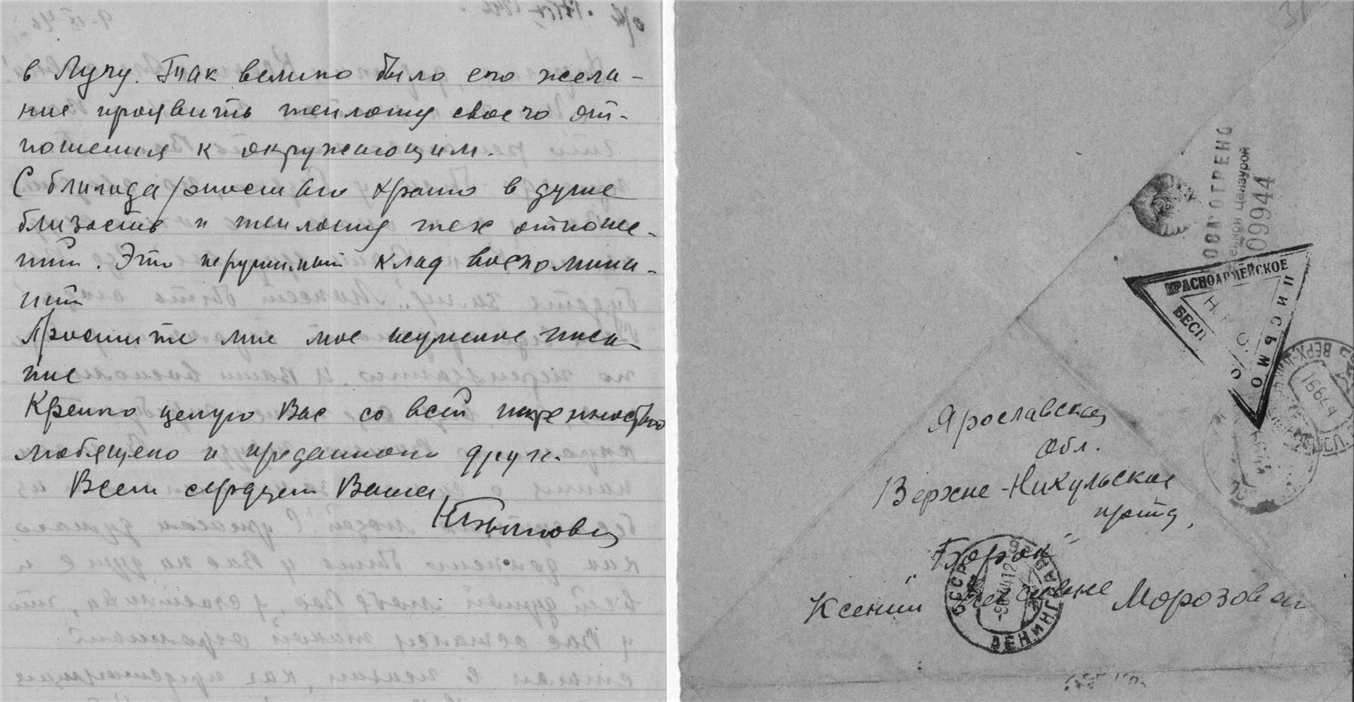 в Лучу. Так велико было его жела-
ние проявить теплоту своего от-
ношения к окружающим.
С благодарностью храню в душе
близость и теплоту тех отноше-
ний. Это нерушимый клад воспомина-
ний
Простите мне мое неумелое писа-
ние
Крепко целую Вас со всей нежностью
любящего и преданного друга.
Всем сердцем Ваша
ПРОСМОТРЕНО
Военной Цензурой
09944
КРАСНОАРМЕЙСКОЕ
ПИСЬМО
БЕСП
Н.К.О.
Ярославская
обл.
Верхне-Никульское
почта,
"Борок"
Ксении
Морозовой
СССР
ЛЕНИНГРАД